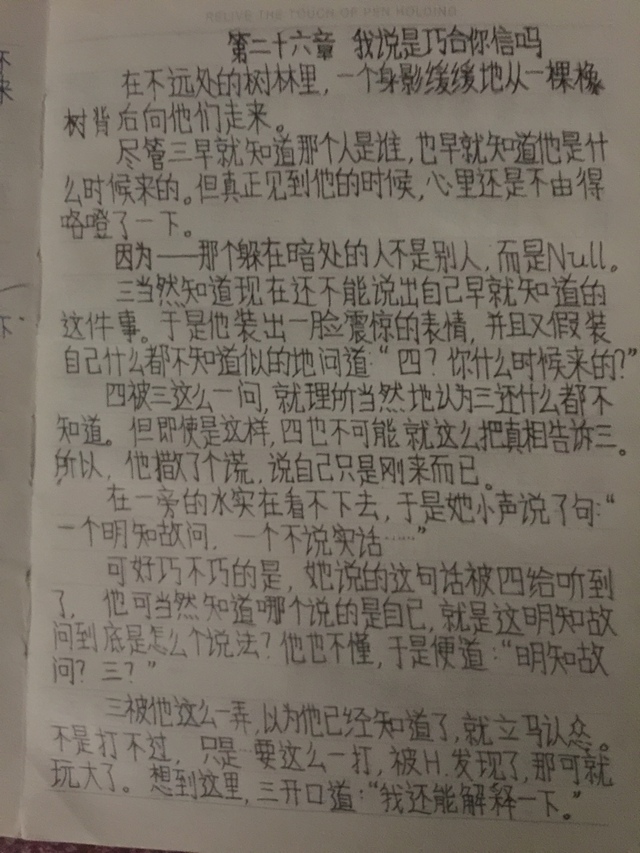 RELIVE THE TOUCH OF PEN HOLDING
第二十六章 我说是巧合你信吗
在不远处的树林里，一个身影缓缓地从一棵橡
树背后向他们走来。
尽管三早就知道那个人是谁，也早就知道他是什
么时候来的。但真正见到他的时候，心里还是不由得
咯噔了一下。
因为——那个躲在暗处的人不是别人，而是Null。
三当然知道现在还不能说出自己早就知道的
这件事。于是他装出一脸震惊的表情，并且又假装
自己什么都不知道似的地问道：“四？你什么时候来的？”
四被三这么一问，就理所当然地认为三还什么都不
知道。但即使是这样，四也不可能就这么把真相告诉三。
所以，他撒了个谎，说自己只是刚来而已。
在一旁的水实在看不下去，于是她小声说了句：“
一个明知故问，一个不说实话……”
可好巧不巧的是，她说的这句话被四给听到
了，他可当然知道哪个说的是自己，就是这明知故
问到底是怎么个说法？他也不懂，于是便道：“明知故
问？三？”
三被他这么一弄，以为他已经知道了，就立马认怂。
不是打不过，只是…要这么一打，被H.发现了，那可就
玩大了。想到这里，三开口道：“我还能解释一下。”